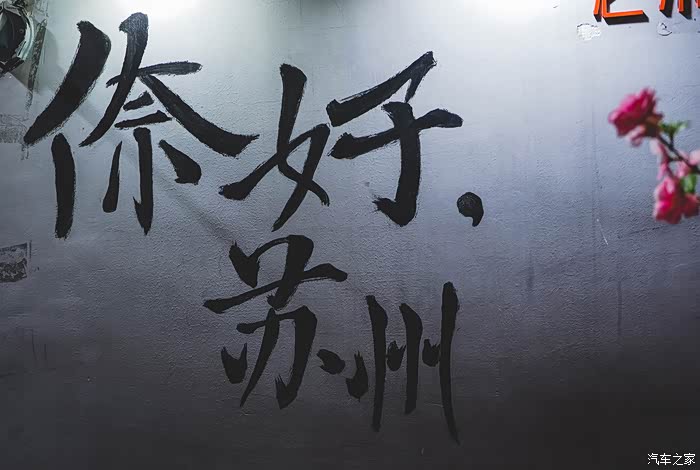 倷好.
苏州
汽车之家